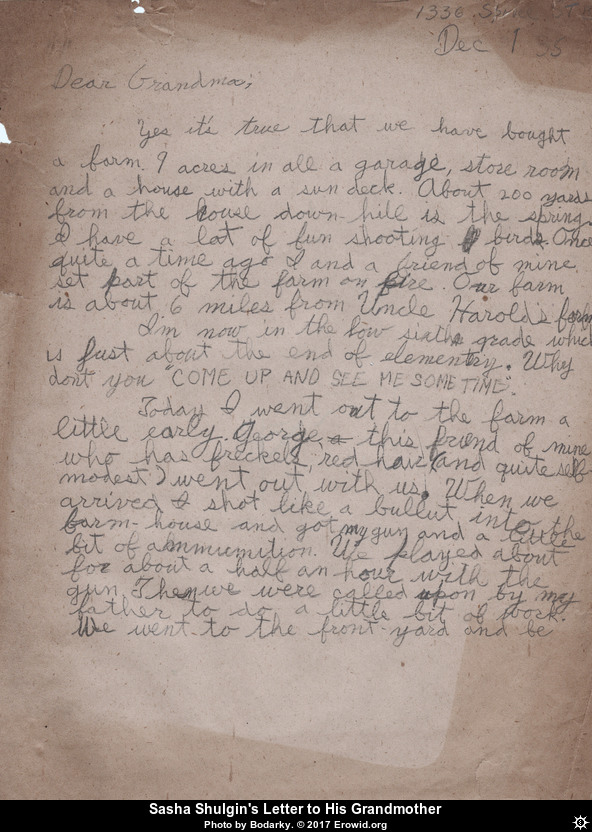 1336
Dec 1 35
Dear Grandma;
Yes it's true that we have bought
a farm. 9 acres in all a garage, store room
and a house with a sun deck. About 200 yards
from the house down-hill is the spring.
I have a lot of fun shooting birds. Once
quite a time ago I and a friend of mine
set part of the farm on fire. Our farm
is about 6 miles from Uncle Harold's farm
I'm now in the low sixth grade which
is just about the end of elementry. Why
dont you "COME UP AND SEE ME SOME TIME".
Today I went out to the farm a
little early. George this friend of mine
who has freckels, red hair (and quite self-
modest) went out with us. When we
arrived I shot like a bullut into the
farm-house and got my gun and a little
bit of amnumition. We played about
for about a half an hour with the
gun. Then we were called upon by my
father to do a little bit of work.
We went to the front-yard and be
Sasha Shulgin's Letter to His Grandmother
Photo by Bodarky. © 2017 Erowid.org